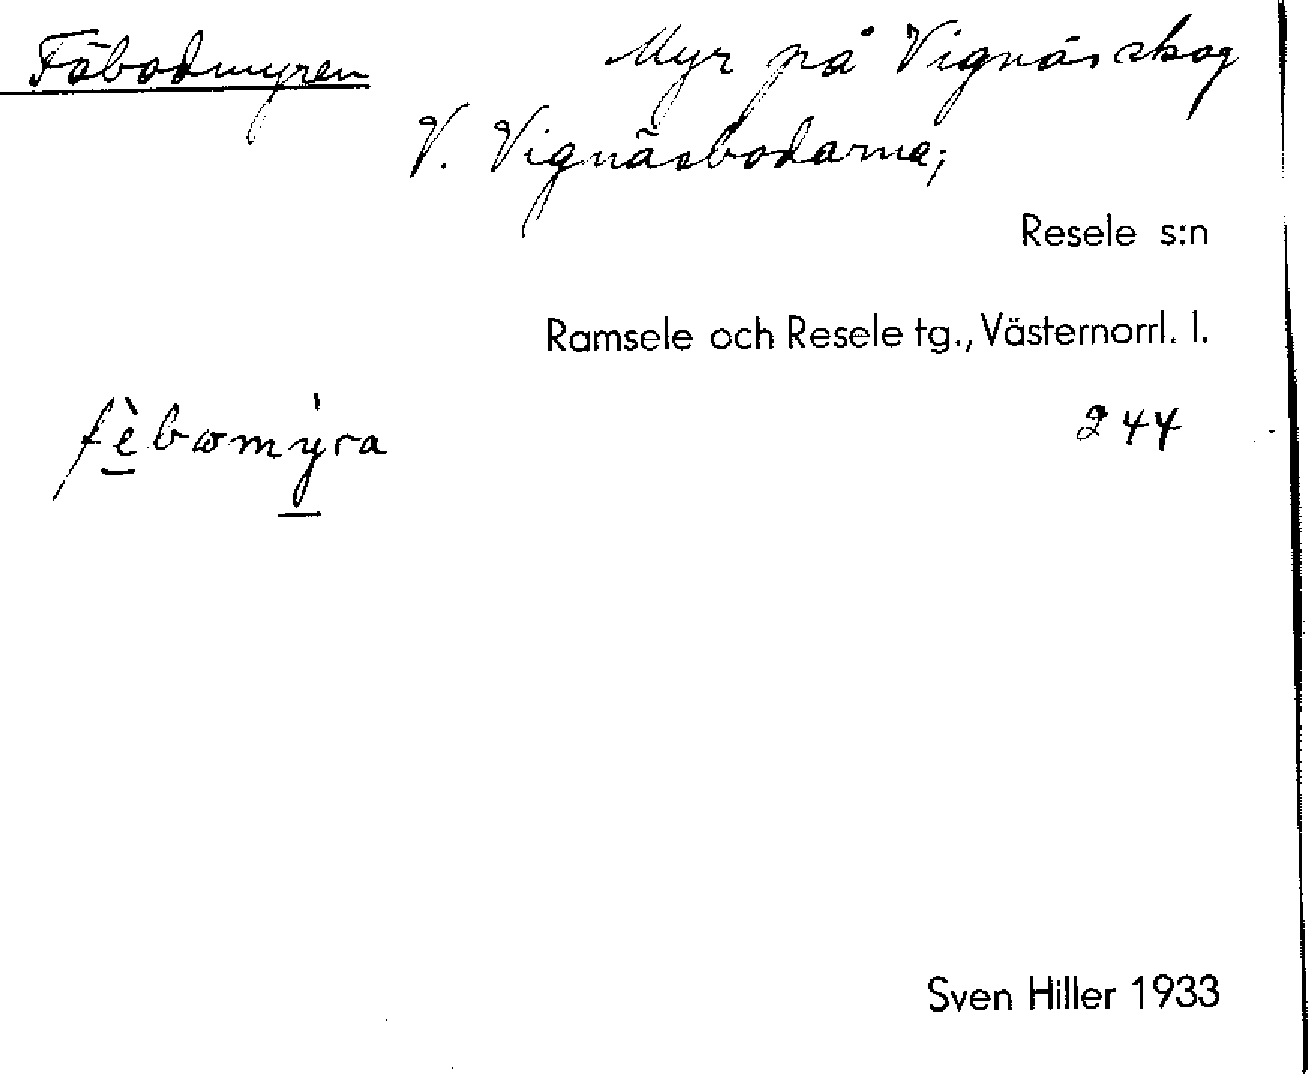 Fäbodmyren
Myr på Vignäs skog
V. Vignäsbodarna;
Resele s:n
Ramsele och Resele tg., Västernorrl. l.
fèbωmỳra
244
Sven Hiller 1933